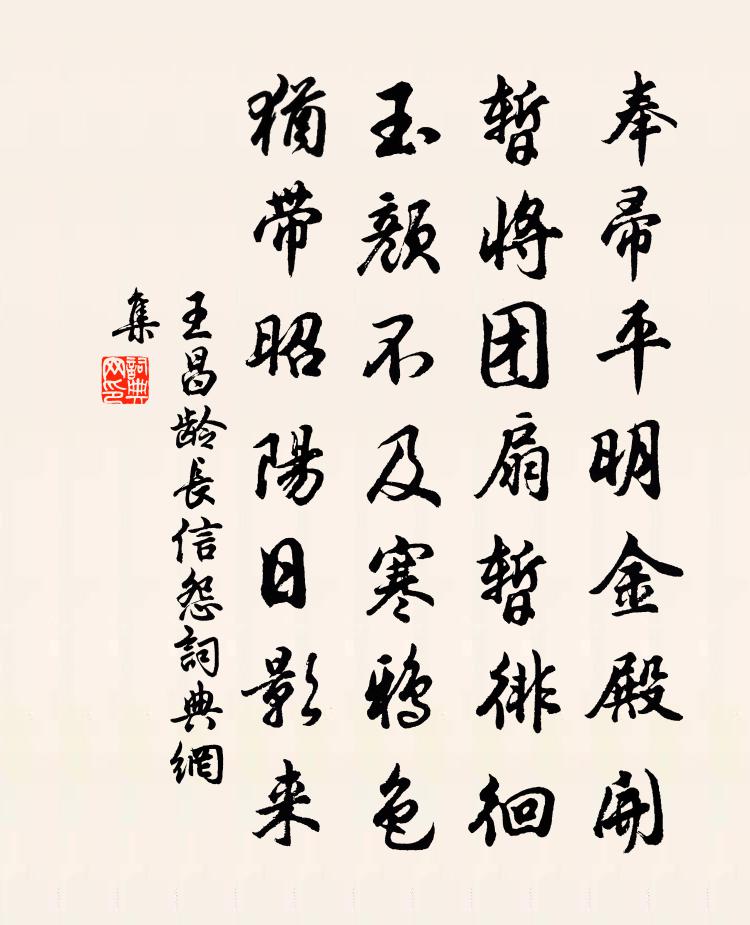 奉帚平明金殿開
暫將团扇暫徘徊
玉顏不及寒鴉色
猶带昭陽日影来
王昌龄長信怨詞典網
集
詞典
网印